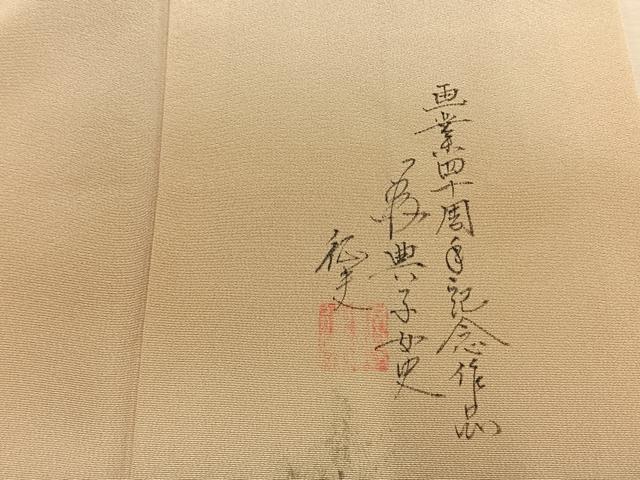 画業四十周年記念作品
為典子女史
征夫